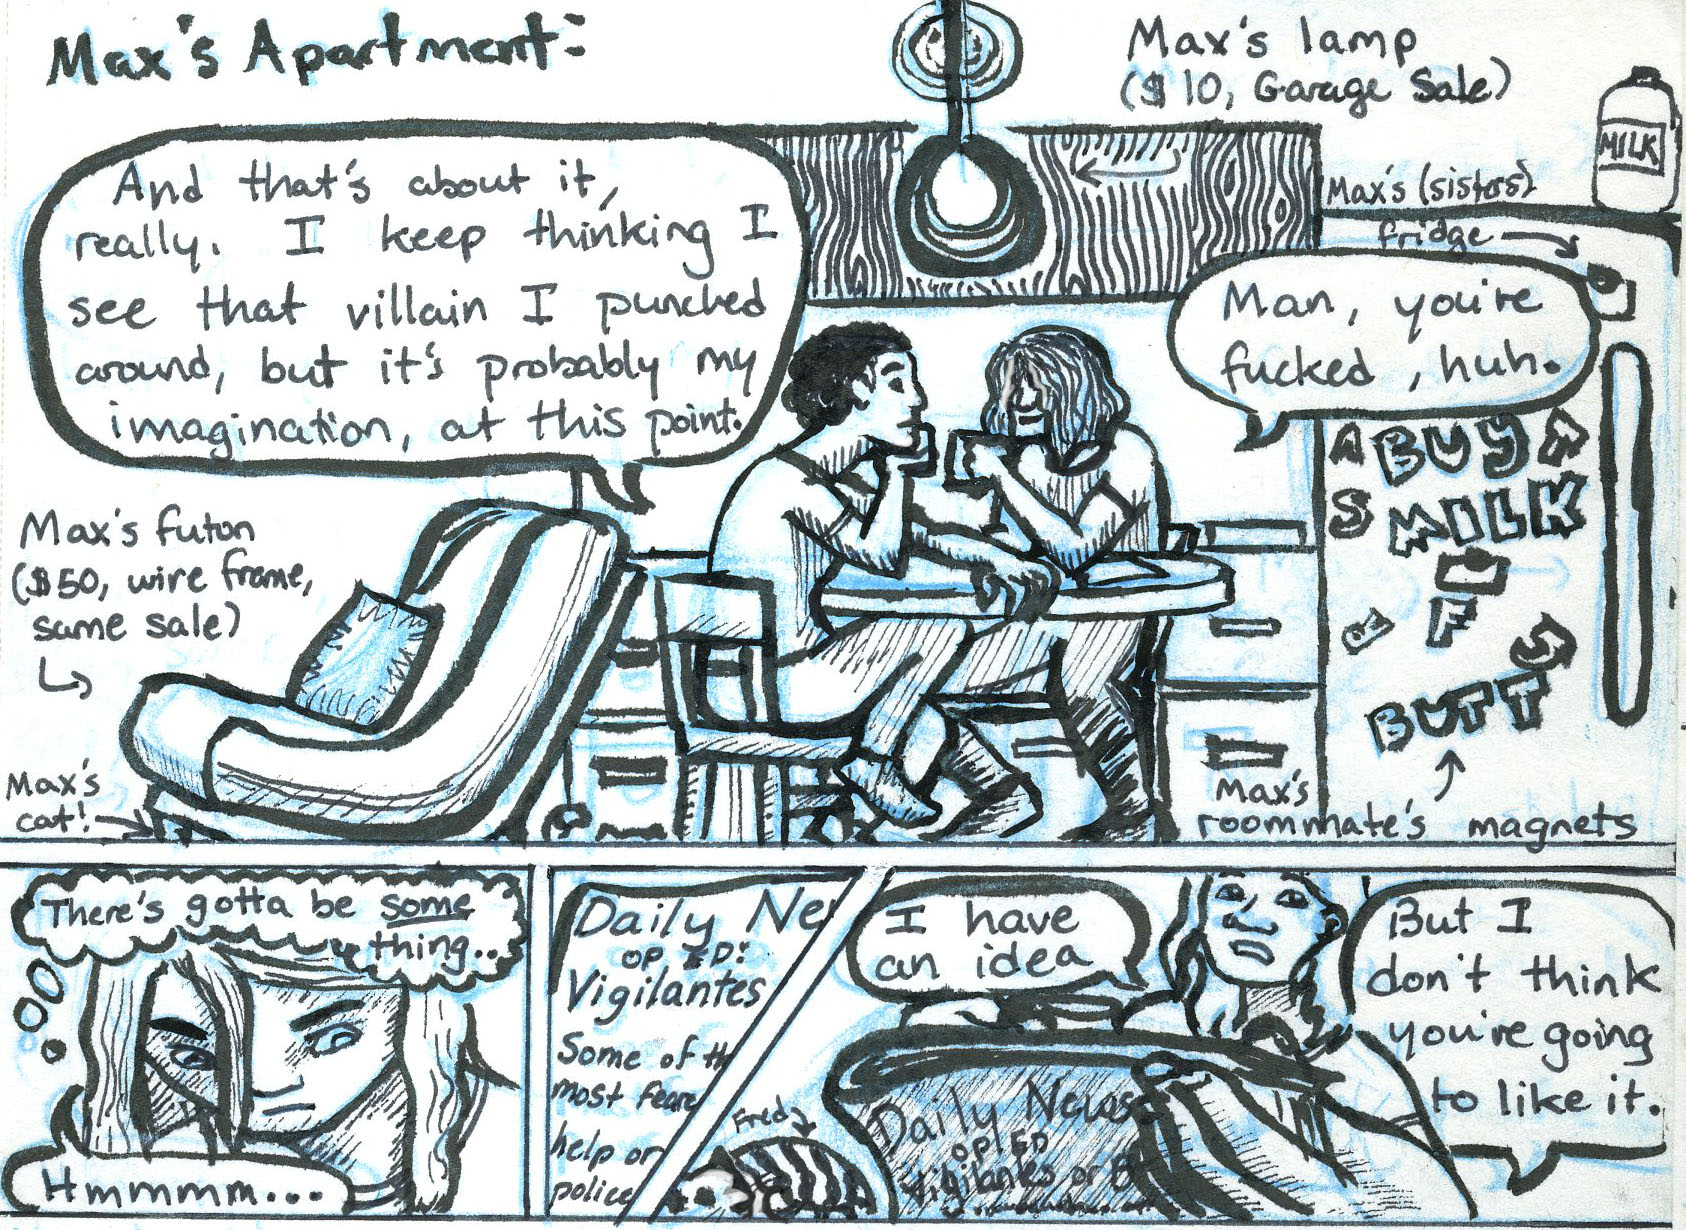 Max's Apartment:
Max's lamp
($10, Garage Sale)
MILK
And that's about it,
really. I keep thinking I
see that villain I punched
around, but it's probably my
imagination, at this point.
Max's (sisters)
fridge
Man, you're
fucked, huh.
A BUY A
S MILK
F
BUTTS
Max's futon
($50, wire frame,
same sale)
Max's
cat!
Max's
roommate's magnets
There's gotta be some
thing..
Hmmmm...
Daily Ne
OP ED:
Vigilantes
Some of th
most feare
help or
police
Fred
I have
an idea
Daily News
OP/ED
Vigilantes or
But I
don't think
you're going
to like it.